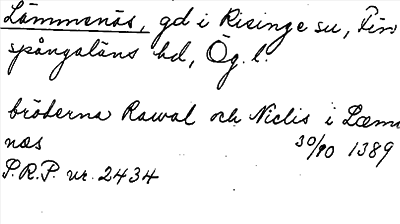 Lämmenäs, gd i Risinge su, Fin
spångaläns hd, Ög. l.
bröderna Rawal och Niclis i Læm
næs 30/10 1389
P.R.P. nr. 2434